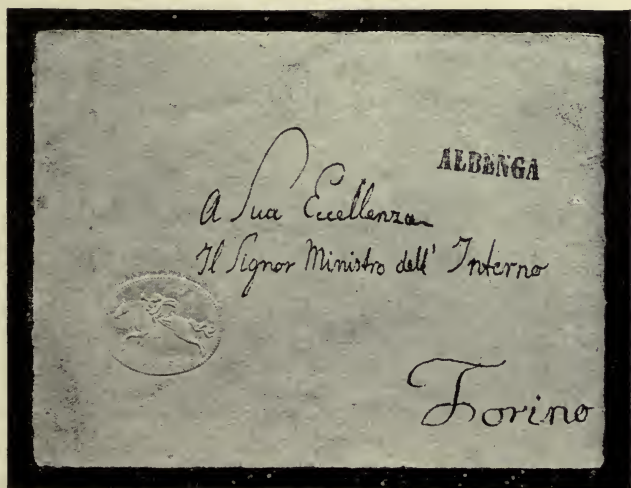 ALBENGA
A Sua Eccellenza
Il Signor Ministro dell' Interno
Torino